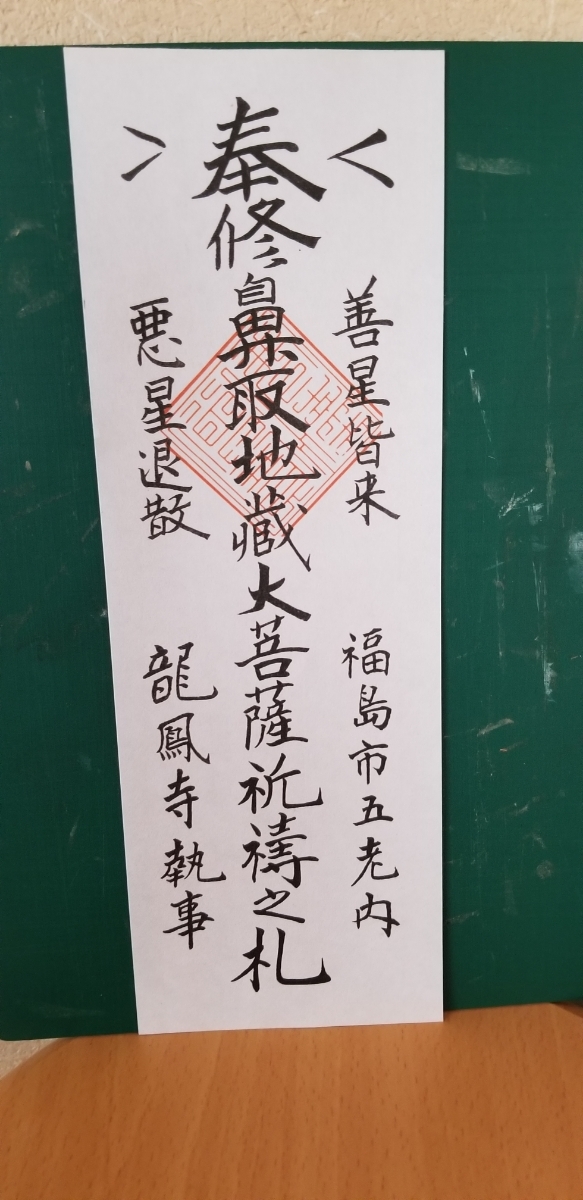 奉修鼻取地蔵大菩薩祈禱之札
善星皆来
福島市五老内
悪星退散
龍鳳寺執事